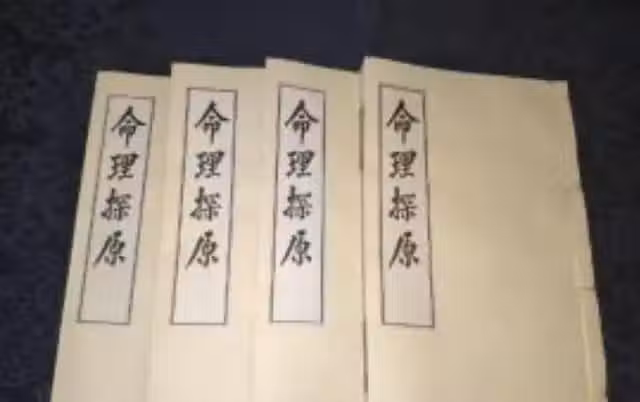 命理探原
命理探原
命理探原
命理探原